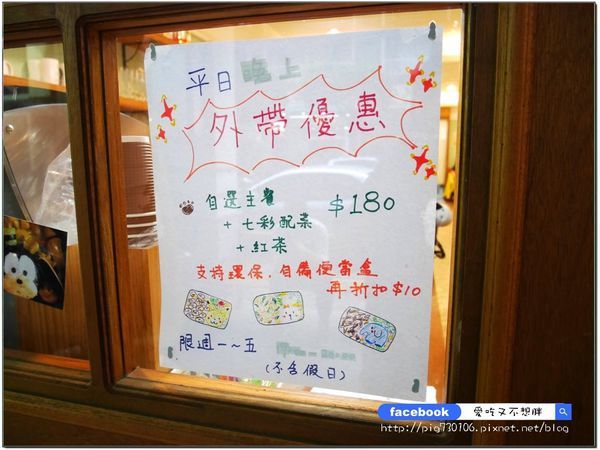 平日 晚上
外帶優惠
自選主餐 $180
+ 七彩配菜
+ 紅茶
支持環保．自備便當盒
再折扣 $10
限週一～五
(不含假日)
facebook 愛吃又不想胖
http://pig730106.pixnet.net/blog